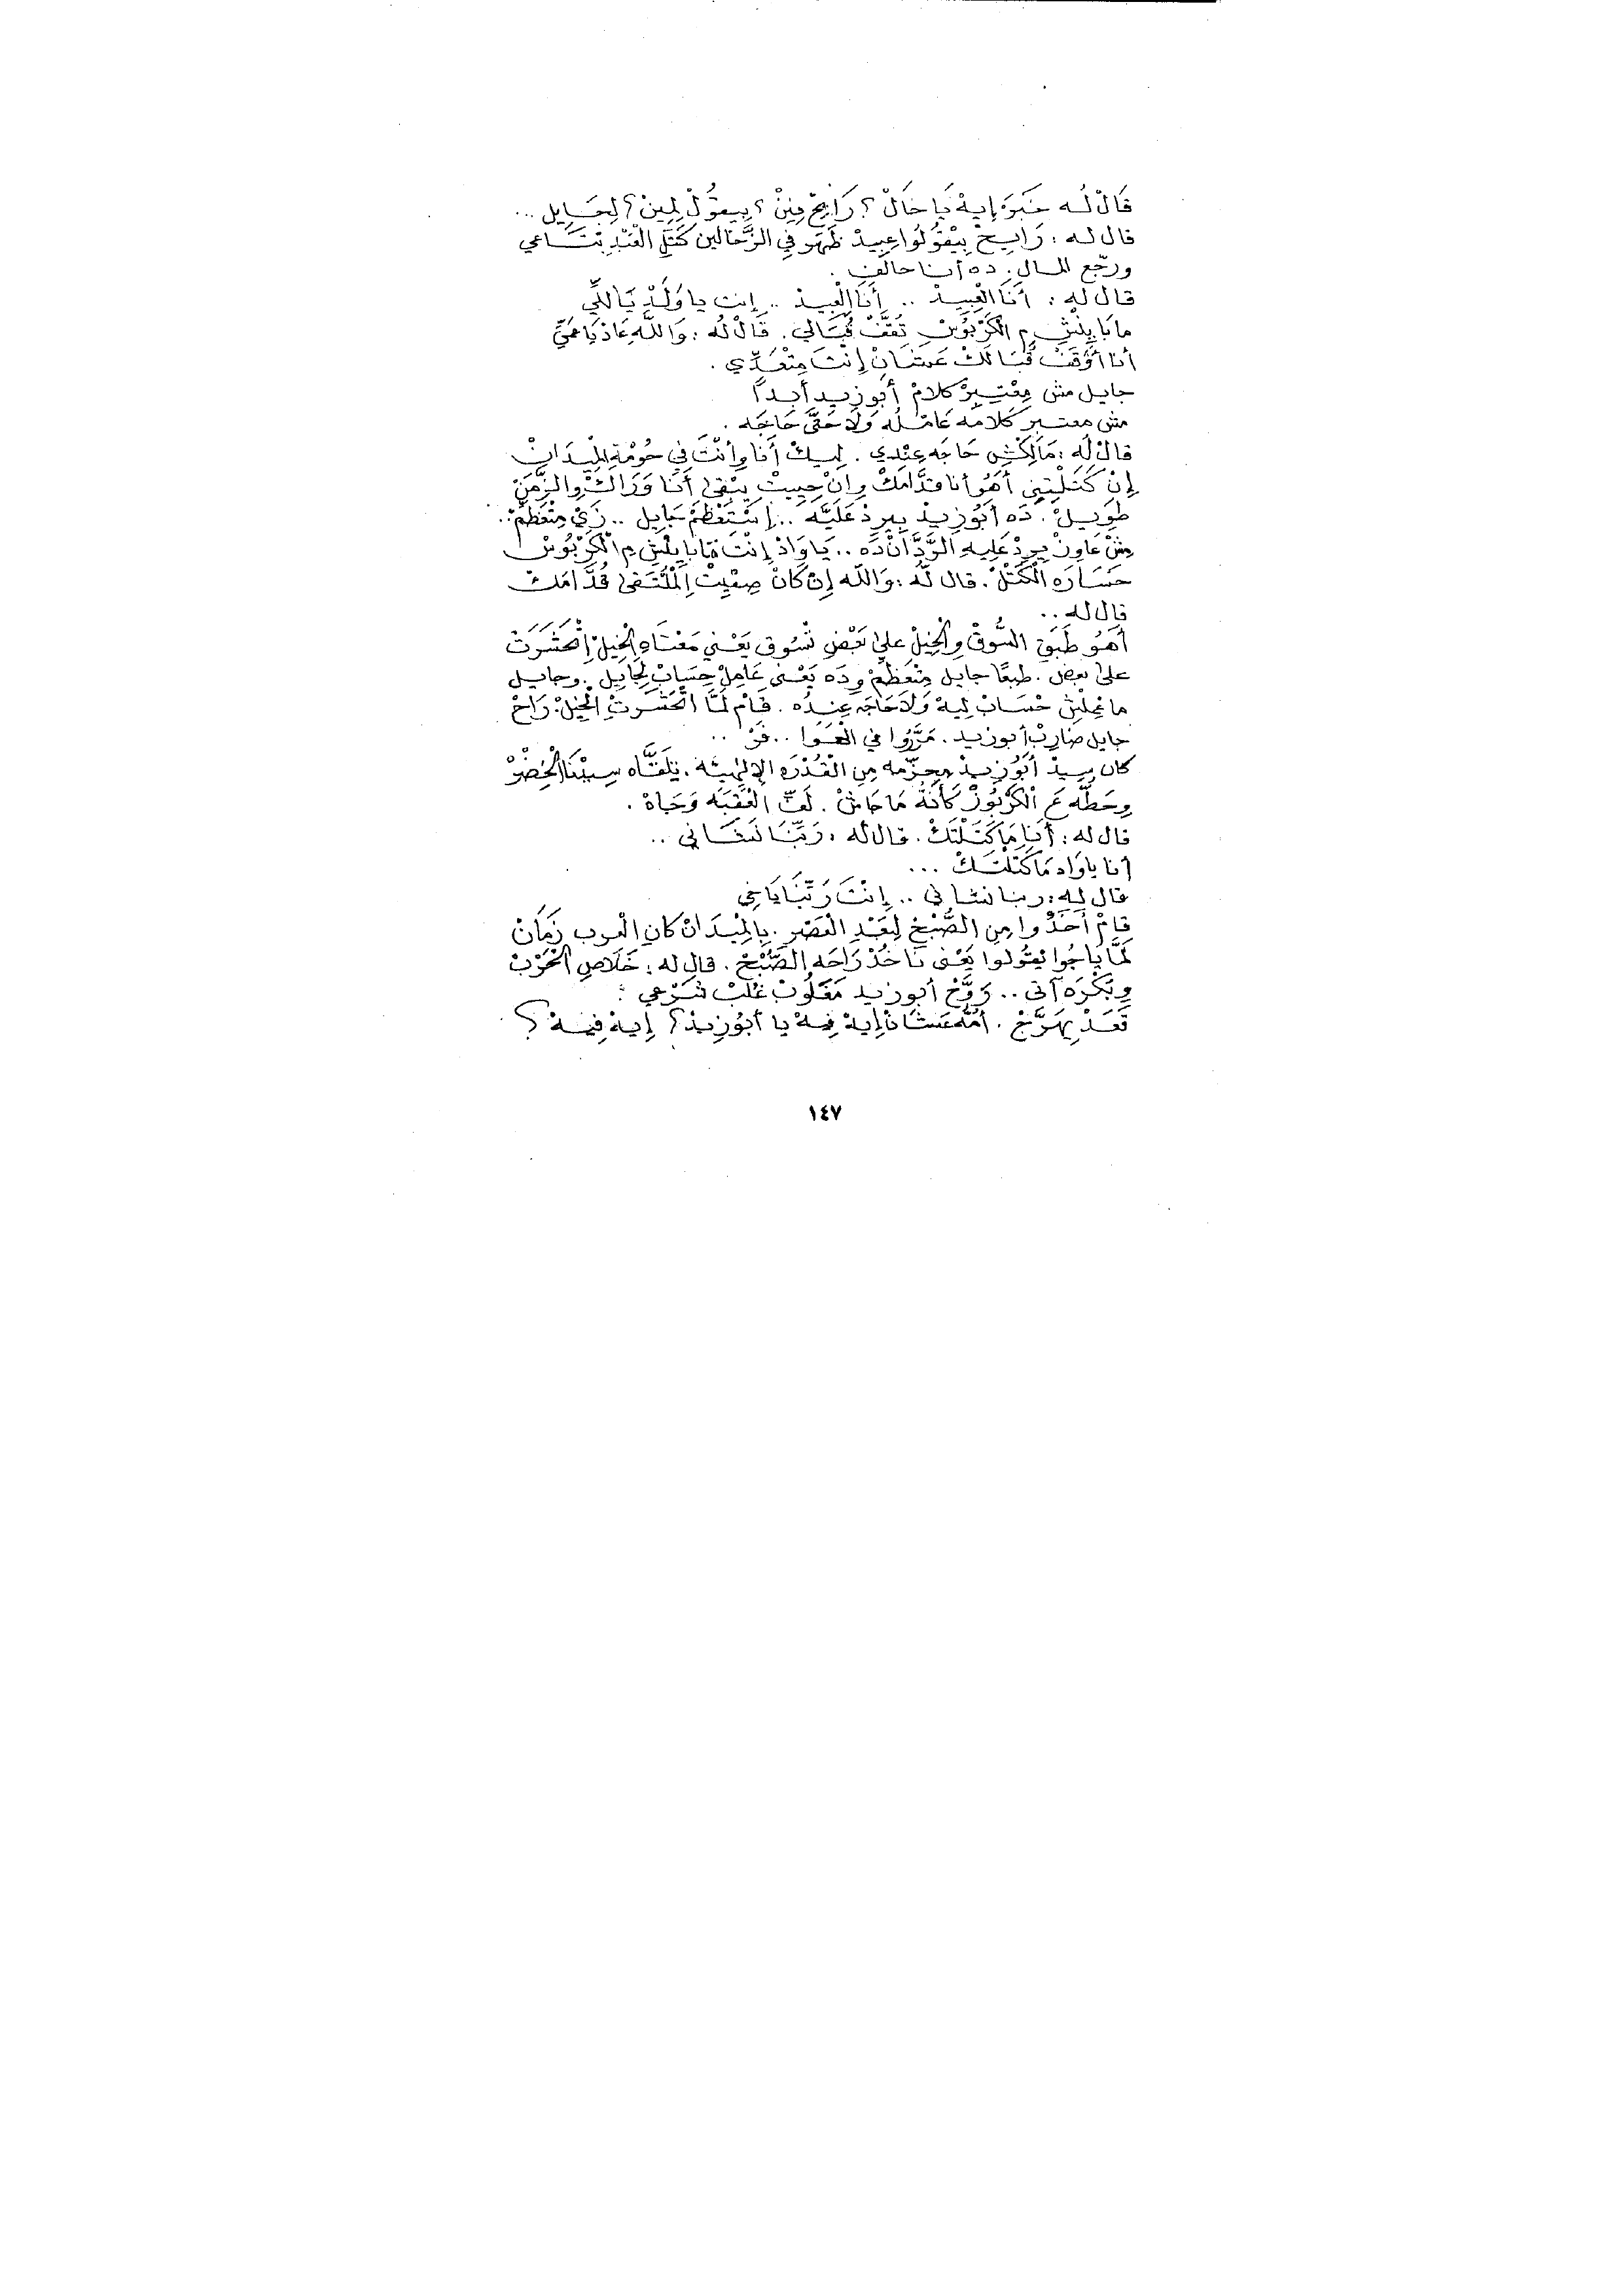 قَالْ لُه خَبَرَ إيهْ يَا خَالْ ؟ رَايِحْ فِينْ ؟ بِيقُولْ لِمِينْ ؟ لِجَايِل ..
قال له : رَايِحْ بِيْقُولُوا عِبِيدْ ظَهَر فِي الزَّحَالين كَتَلِ الْعَبْدِ بْتَاعي
ورجّع المال . ده أنا حالف .
قال له : أَنَا الْعِبِيدْ .. أَنَا الْعِبِيدْ .. إنت يا وَلَدْ يَاللِّي
مابَا يِنْشِ مِ الْكَرْبُوسْ تُقَفْ قُبَالي . قَالْ لُه : وَاللَّهِ عَادْ يَا عَمِّي
أنا أُوقَفْ قُبَالَكْ عَشَانْ إنْتَ مِتْعَدِّي .
جايل مش مِعْتِبِرْ كلامْ أبوزيد أبداً
مش معتبر كَلامُه عَامْلُه وَلاَ حَتَّى حَاجَه .
قالْ لَه : مَالَكْشِ حَاجَه عِنْدِي . لِيكْ أَنَا وِأنْتَ فِي حُومْةِ الْمِيدَانْ
إِنْ كَتَلْتِنِي أَهُو أنا قدَّامَكْ وِانْ حِييتْ يِبْقى أَنَا وَرَاكْ وِالزَّمَنْ
طَوِيلْ . دَه أبُوزِيدْ بِيرِدْ عَلَيَّه .. إسْتَعْظَمْ جَايِل .. زَيْ مِتْعَظِّمْ ..
مِشْ عَاوِزْ يِرِدْ عَلِيهِ الرَّدَّانْ دَه .. يَا وَادْ إِنْتَ مَابَايِنْشِ مِ الْكَرْبُوسْ
خَسَارَه الْكَتْلْ . قال لُه : وَاللّه إِنْ كَانْ صِفِيتْ اِلْمُلْتَقى قُدَّامَكْ
قال له ..
أَهُو طَبَقِ السُّوقْ وِالْخِيلْ على بَعْضِ تْسُوق يَعْنِي مَعْنَاهِ الْخِيلْ إنْحَشَرَتْ
على بعض . طبعًا جايل مِتْعَظِّمْ وِدَه يَعْنى عَامِلْ حِسَابْ لِجَايِل . وجايل
ما عَمِلْش حْسَابْ لِيهْ وَلاَ حَاجَه عِنْدُه . قَامْ لَمَّا اتْحَشَرِتْ الْخِيلْ . رَاحْ
جايل ضارِبْ أبوزيد . مَرَّرُوا في الْهَوَا .. فَوْ ..
كان سِيدْ أَبُوزِيدْ مِحِزّمه مِنِ الْقُدْرَه الإِلهِيَّه . يِتْلَقَّاه سِيدْنَا الْخِضْرْ
وِحَطُّه عَ الْكَرْبُوزْ كَأنَّهُ مَا حَاشْ . لَفِّ الْعَقَبَه وَجَاهْ .
قال له : أَنَا مَا كَتَلْتَكْ . قال له : رَبِّنَا نَشَانِي ..
أنا ياوَاد مَا كَتَلْتَكْ ...
قال له : ربنا نشاني .. إِنْتَ رَبِّنَا يَا خي
قَامْ أَخَدُوا مِنِ الصُّبْحْ لِبَعْدِ الْعَصْرِ . بِالْمِيدَانْ كان الْعرب زَمَانْ
لَمَّا يَاجُوا يقُولوا يَعْنى نَاخُدْ رَاحَه الصُّبْحْ . قال له : خَلَاصِ الْحَرْبْ
وِبُكْرَه آتى .. رَوَّحْ أبوزيد مَغْلُوبْ غُلْبْ شَرْعي :
قَعَدْ يِهَرَّجْ . أُمُّه عَشَانْ إيهْ فِيهْ يا أبُوزِيدْ ؟ إيهْ فِيهْ ؟
١٤٧